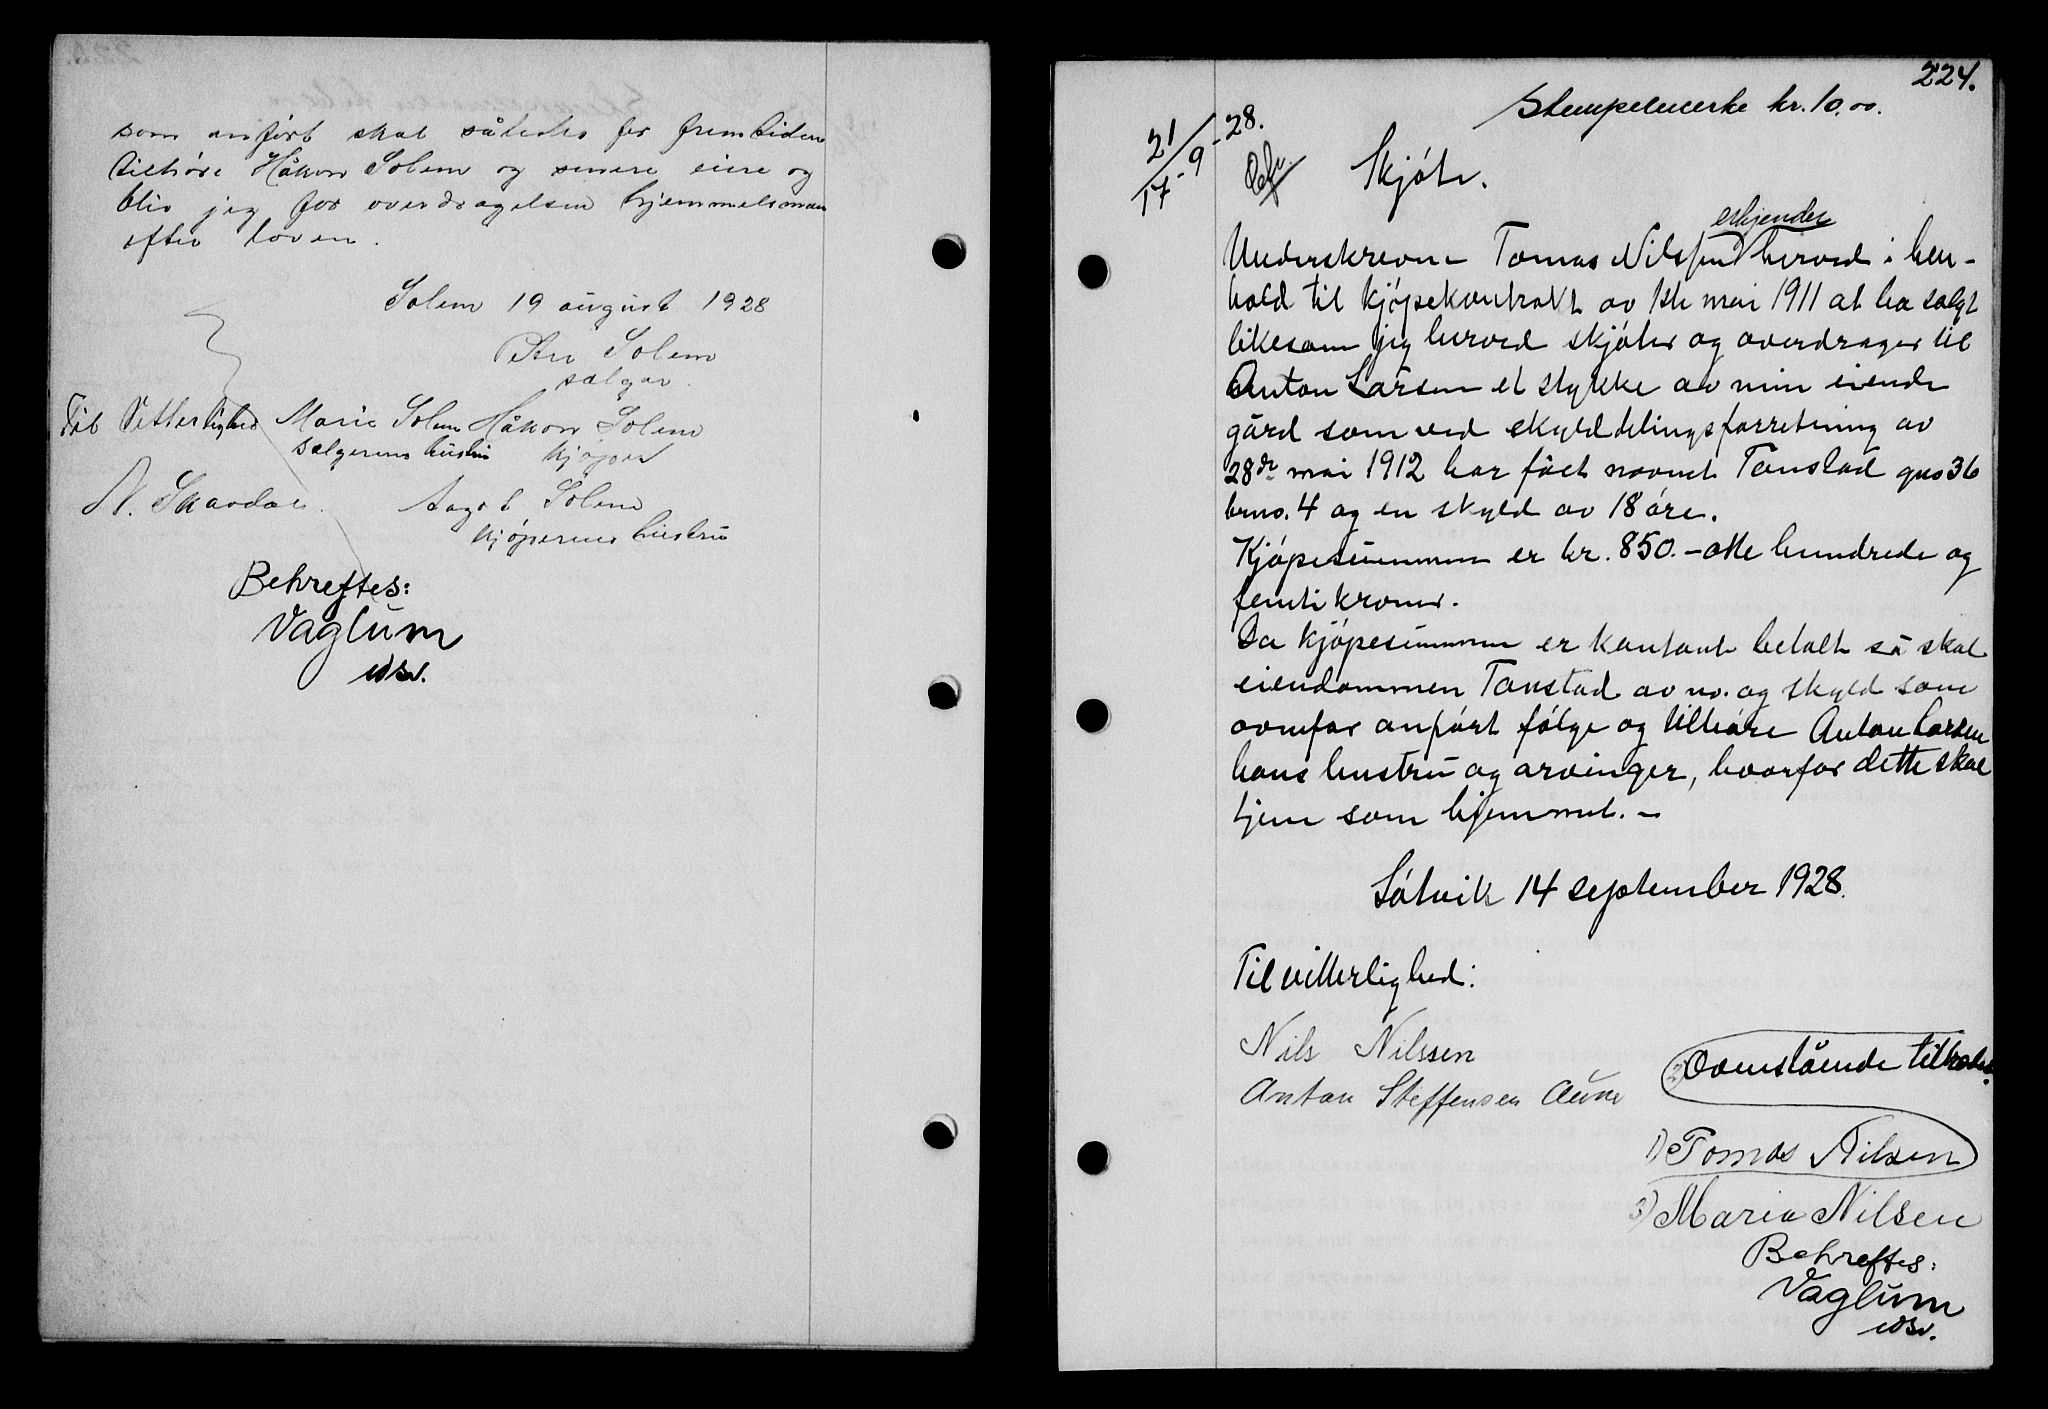 som anført skal således for fremtiden
tilhøre Håkon Solem og senere eiere og
blir jeg for overdragelsen hjemmelsman
efter loven.
Solem 19 august 1928
Peter Solem
sælger.
Til Vitterlighed Marie Solem Håkon Solem
sælgerens hustru kjøper
N. Skavdal. Aagot Solem
kjøperens hustru
Bekreftes:
Vaglum
224.
Stempelmerke kr. 10.00.
21/9-28.
17
Skjøte.
erkjender
Underskrevne Tomas Nilssen herved i hen-
hold til kjøpekontrakt av 1ste mai 1911 at ha solgt
likesom jeg herved skjøter og overdrager til
Anton Larsen et stykke av min eiende
gård som ved skylddelingsforretning av
28de mai 1912 har fået navnet Tanstad gno 36
bno. 4 og en skyld av 18 øre.
Kjøpesummen er kr. 850.- otte hundrede og
femti kroner.
Da kjøpesummen er kontant betalt så skal
eiendommen Tanstad av no. og skyld som
ovenfor anført følge og tilhøre Anton Larsen
hans hustru og arvinger, hvorfor dette skal
tjene som hjemmel. -
Søtvik 14 september 1928.
Til vitterlighed:
Nils Nilssen
2) Ovenstående tiltrædes.
Anton Steffensen Aune
1) Tomas Nilsen
3) Maria Nilsen
Bekreftes:
Vaglum